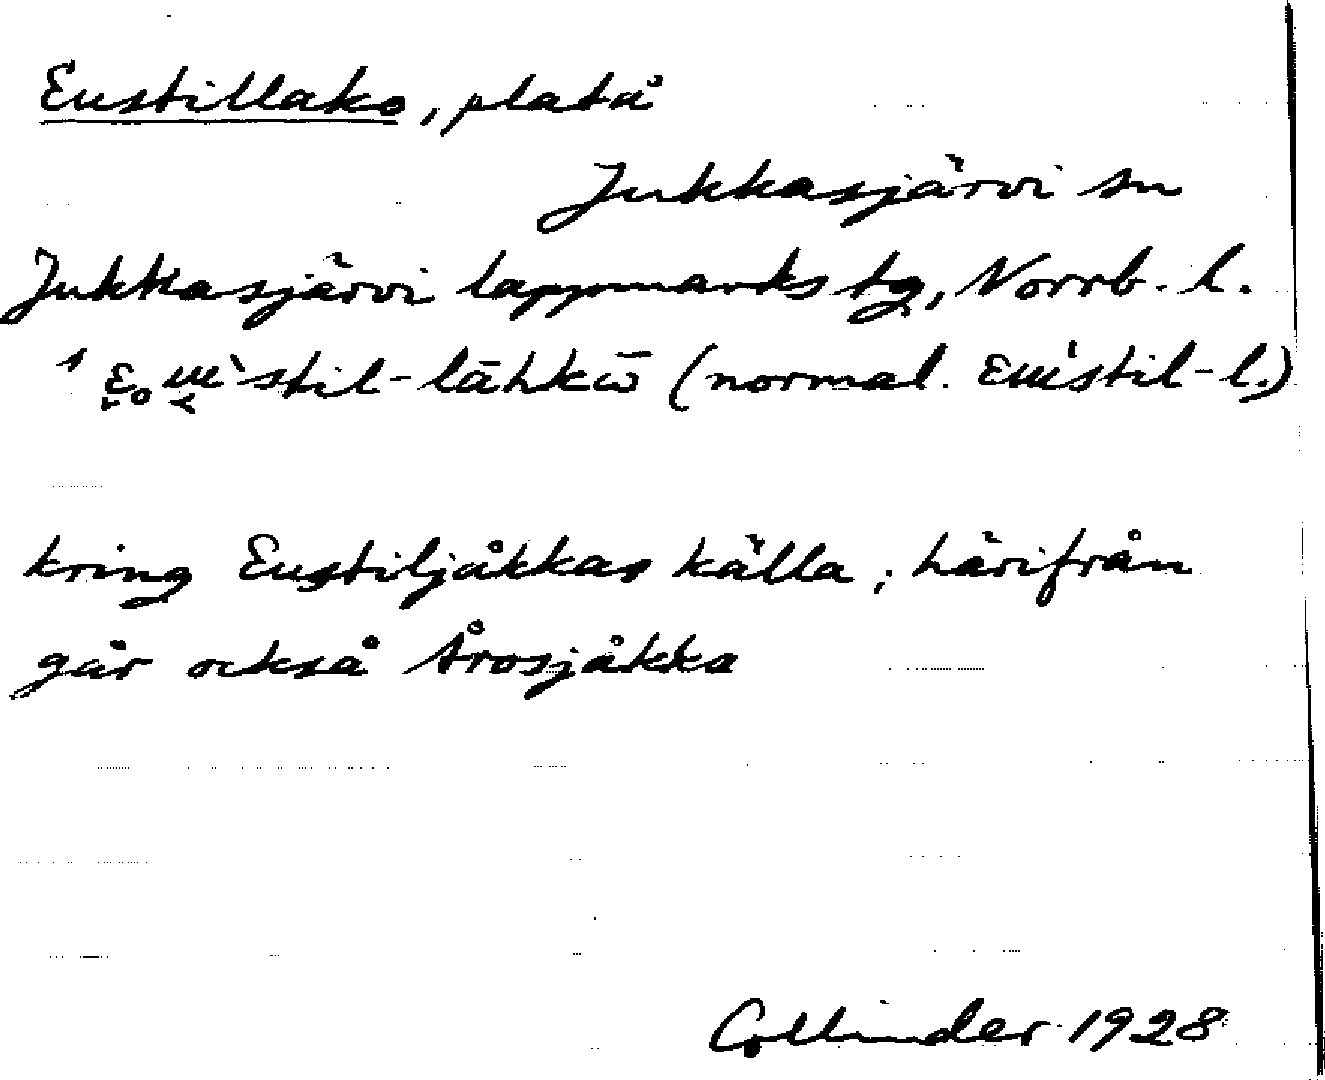 Eustillako, platå
Jukkasjärvi sn
Jukkasjärvi lappmarks tg, Norrb. l.
stil-lāhkω̄ (normal. Eɯ'stil-l.)
kring Eustiljåkkas källa; härifrån
går också Årosjåkka
Collinder 1928